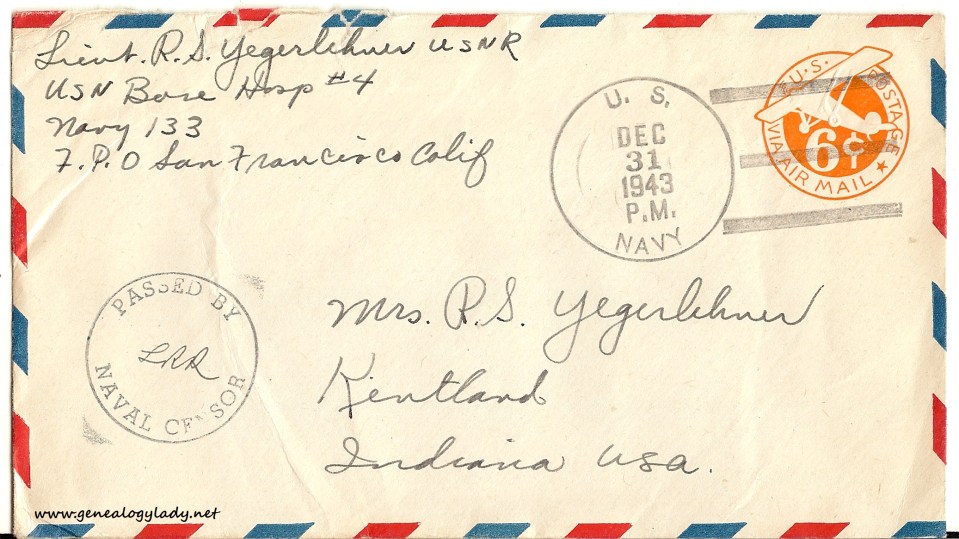 Lieut. R. S. Yegerlehner USNR
USN Base Hosp #4
Navy 133
F.P.O San Francisco Calif
U. S.
DEC
31
1943
P.M.
NAVY
U.S. POSTAGE
6¢
VIA AIR MAIL
PASSED BY
LRR
NAVAL CENSOR
Mrs. R. S. Yegerlehner
Kentland
Indiana USA.
www.genealogylady.net